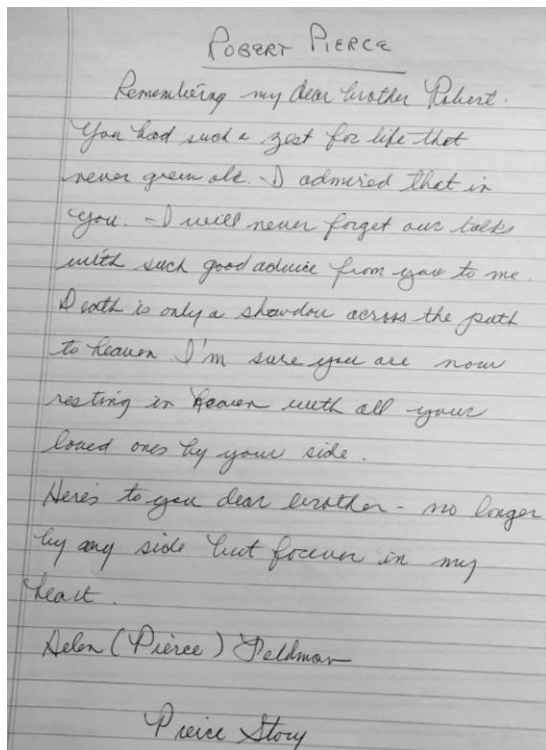 ROBERT PIERCE
Remembering my dear brother Robert.
You had such a zest for life that
never grew old. I admired that in
you. I will never forget our talks
with such good advice from you to me.
Death is only a shawdow across the path
to heaven. I'm sure you are now
resting in heaven with all your
loved ones by your side.
Here's to you dear brother - no longer
by my side but forever in my
heart.
Helen (Pierce) Feldman
Pierce Story